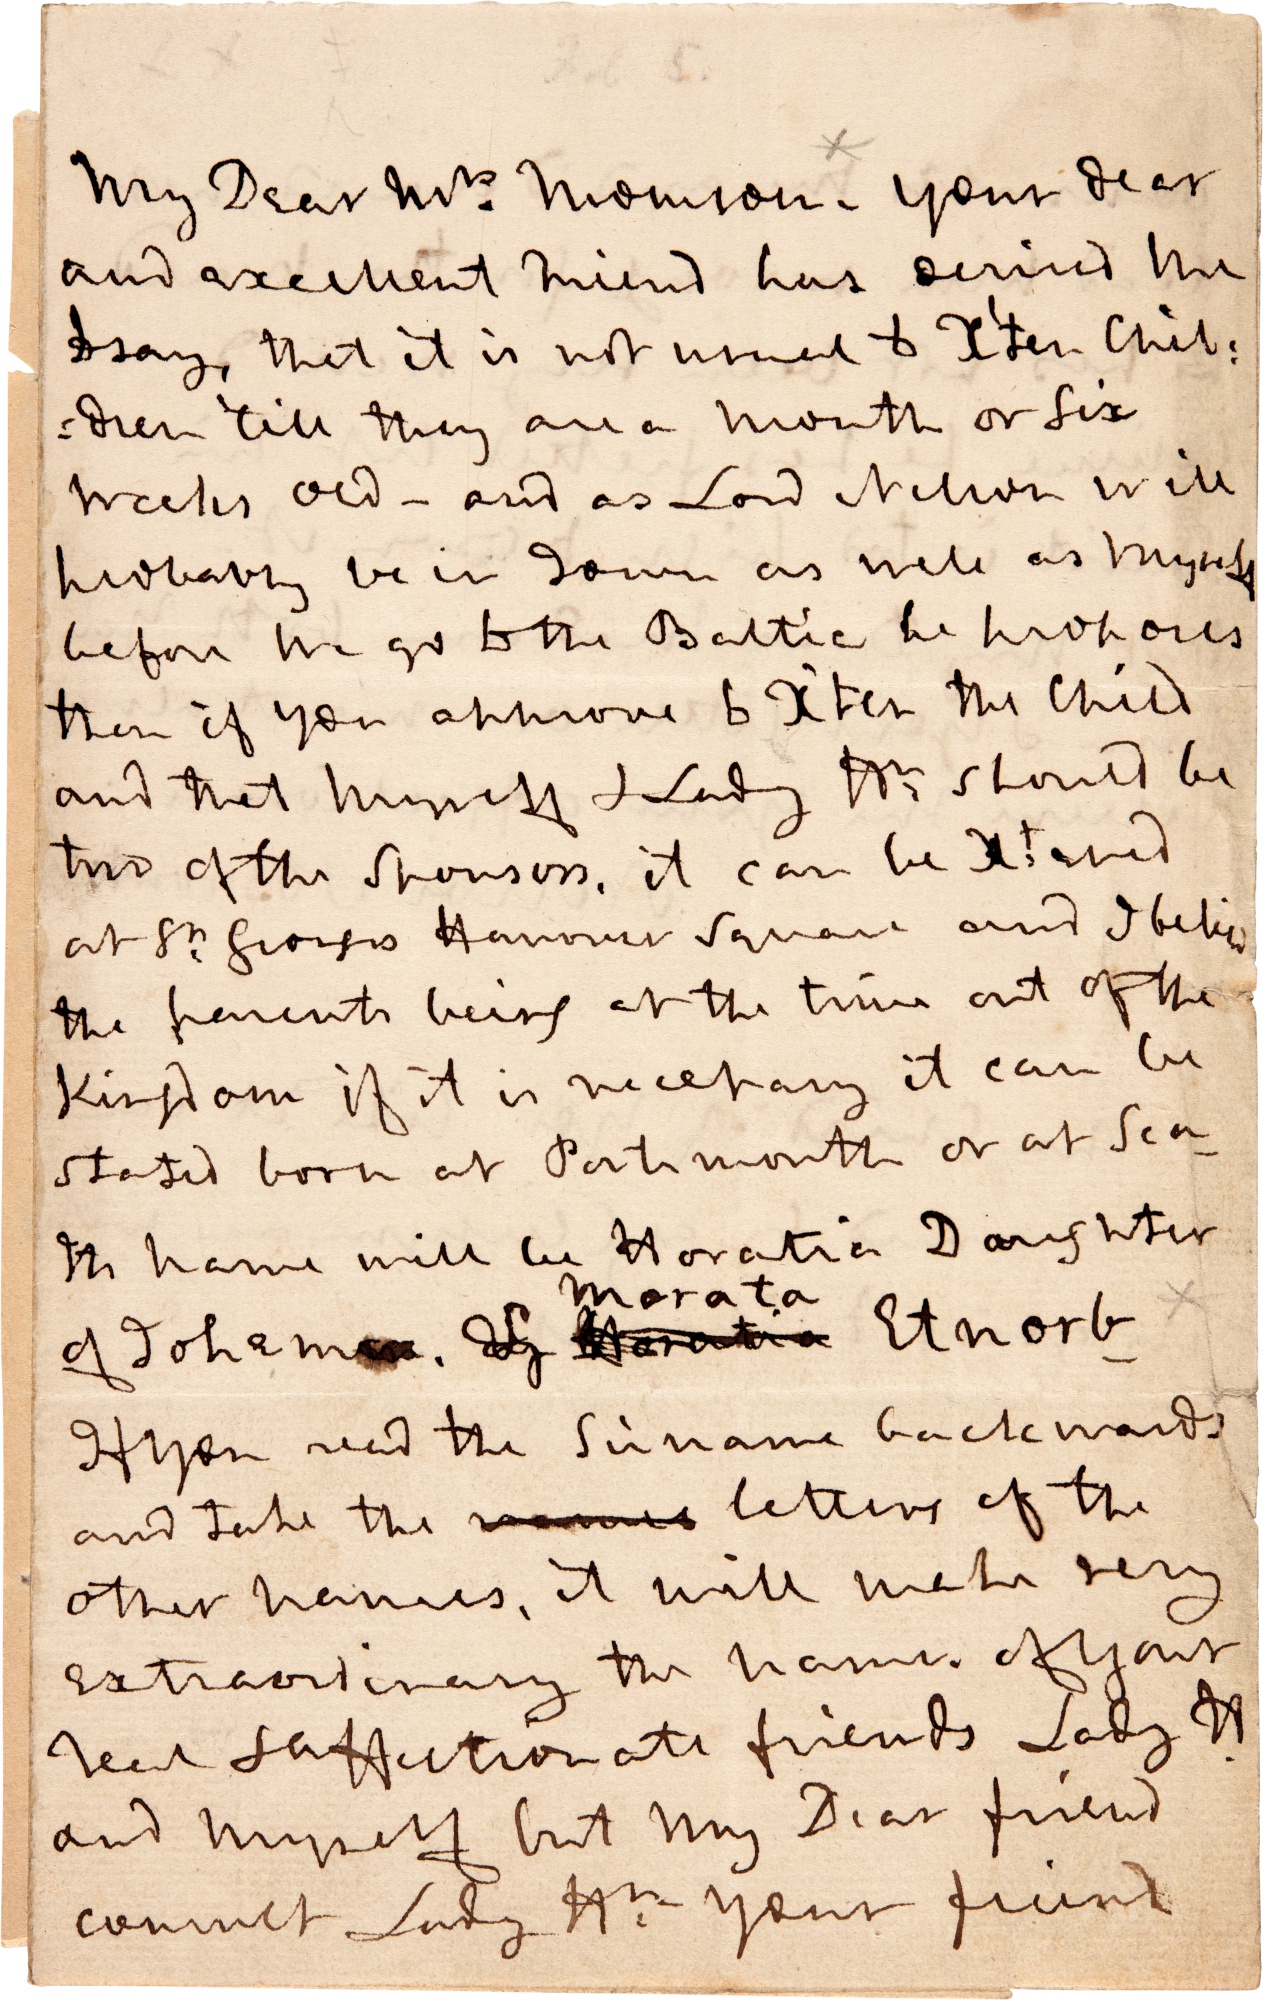 My Dear Mrs. Thomson. your dear
and excellent friend has desired me
to say, that it is not usual to X'ten Chil:
:dren 'till they are a month or Six
weeks old - and as Lord Nelson will
probably be in Town as well as Myself
before we go to the Baltic he proposes
then if you approve to X'ten the Child
and that myself & Lady Hn. should be
two of the Sponsors. it can be X'tened
at St. Georges Hanover Square and I believe
the parents being at the time out of the
Kingdom if it is necessary it can be
stated born at Portsmouth or at Sea_
Its name will be Horatia Daughter
Morata
of Johem. & Horatia Etnorb_
If you read the Surname backwards
and take the names letters of the
other names, it will make very
extraordinary the names of your
real & affectionate friends Lady H.
and myself but my Dear friend
consult Lady Hn. your friend